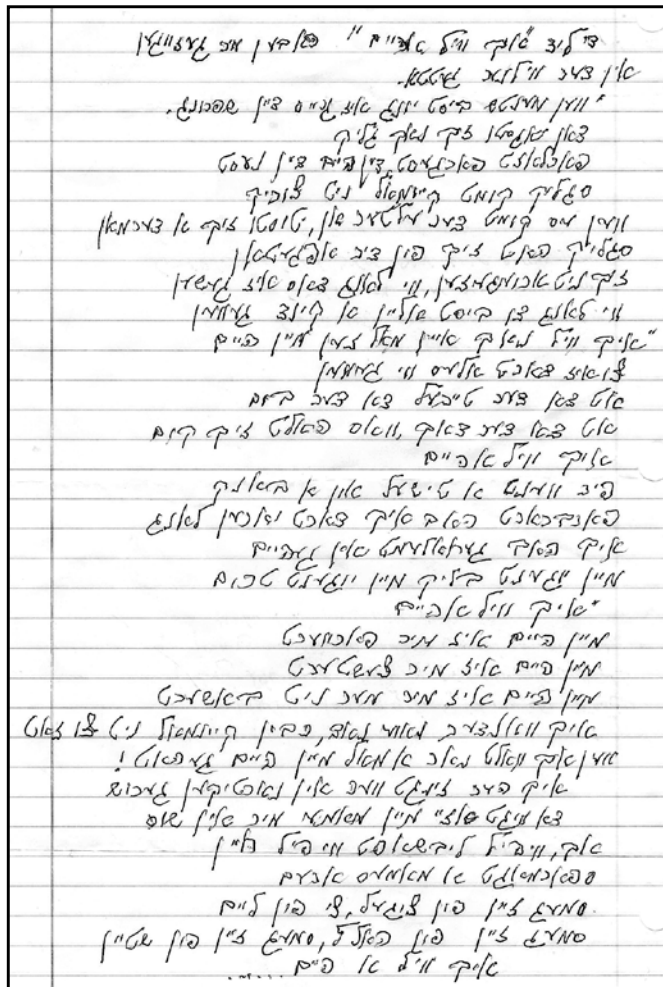 די ליד "איך וויל אהיים" האבען מיר געזונגען
אין דער ווילנער געטא.
"ווען מענטש ביסט יונג איז גרויס דיין שפרונג.
דאן יאגסטו זיך נאך גליק
פארלאזט פארגעסט דיין היים דיין נעסט
סגליק קומט קיינמאל ניט צוריק
ווען עס קומט דער עלטער אן, טוסטו זיך א דערמאן
סגליק האט זיך פון דיר אפגעטאן
זיך ניט ארומגעזען, ווי לאנג דאס איז געשען
ווי לאנג דו ביסט אליין א קינד געווען
"איך וויל נאך איין מאל זען מיין היים
צו איז דארט אלעס ווי געווען
אט דא דער טייכעל דא דער בוים
אט דא דער דאך, וואס האלט זיך קוים
איך וויל אהיים
פיר ווענט א טישעל און א באנק
פארבראכט האב איך דארט יארען לאנג
איך האב געחלומט אין געהיים
מיין יוגענט בליק מיין יוגענט טרוים
"איך וויל אהיים
מיין היים איז מיר פארווערט
מיין היים איז מיר צושטערט
מיין היים איז מיר מער ניט באשערט
איך וואלגער, נאך, בין קיינמאל ניט צו זאט
ווען איך וואלט נאר א מאל מיין היים געהאט!
איך הער זינגט ווער אין נאכטיקען גערויש
דא וויגט אזיי מיין מאמע מיר אין שויס
אך, וויפיל ליבשאפט מיט חן
פארמאגט א מאמעס ארעם
סמעג זיין פון ציגעל, צי פון ליים
סמעג זיין פון האלץ, סמעג זיין פון שטיין
איך וויל א היים......